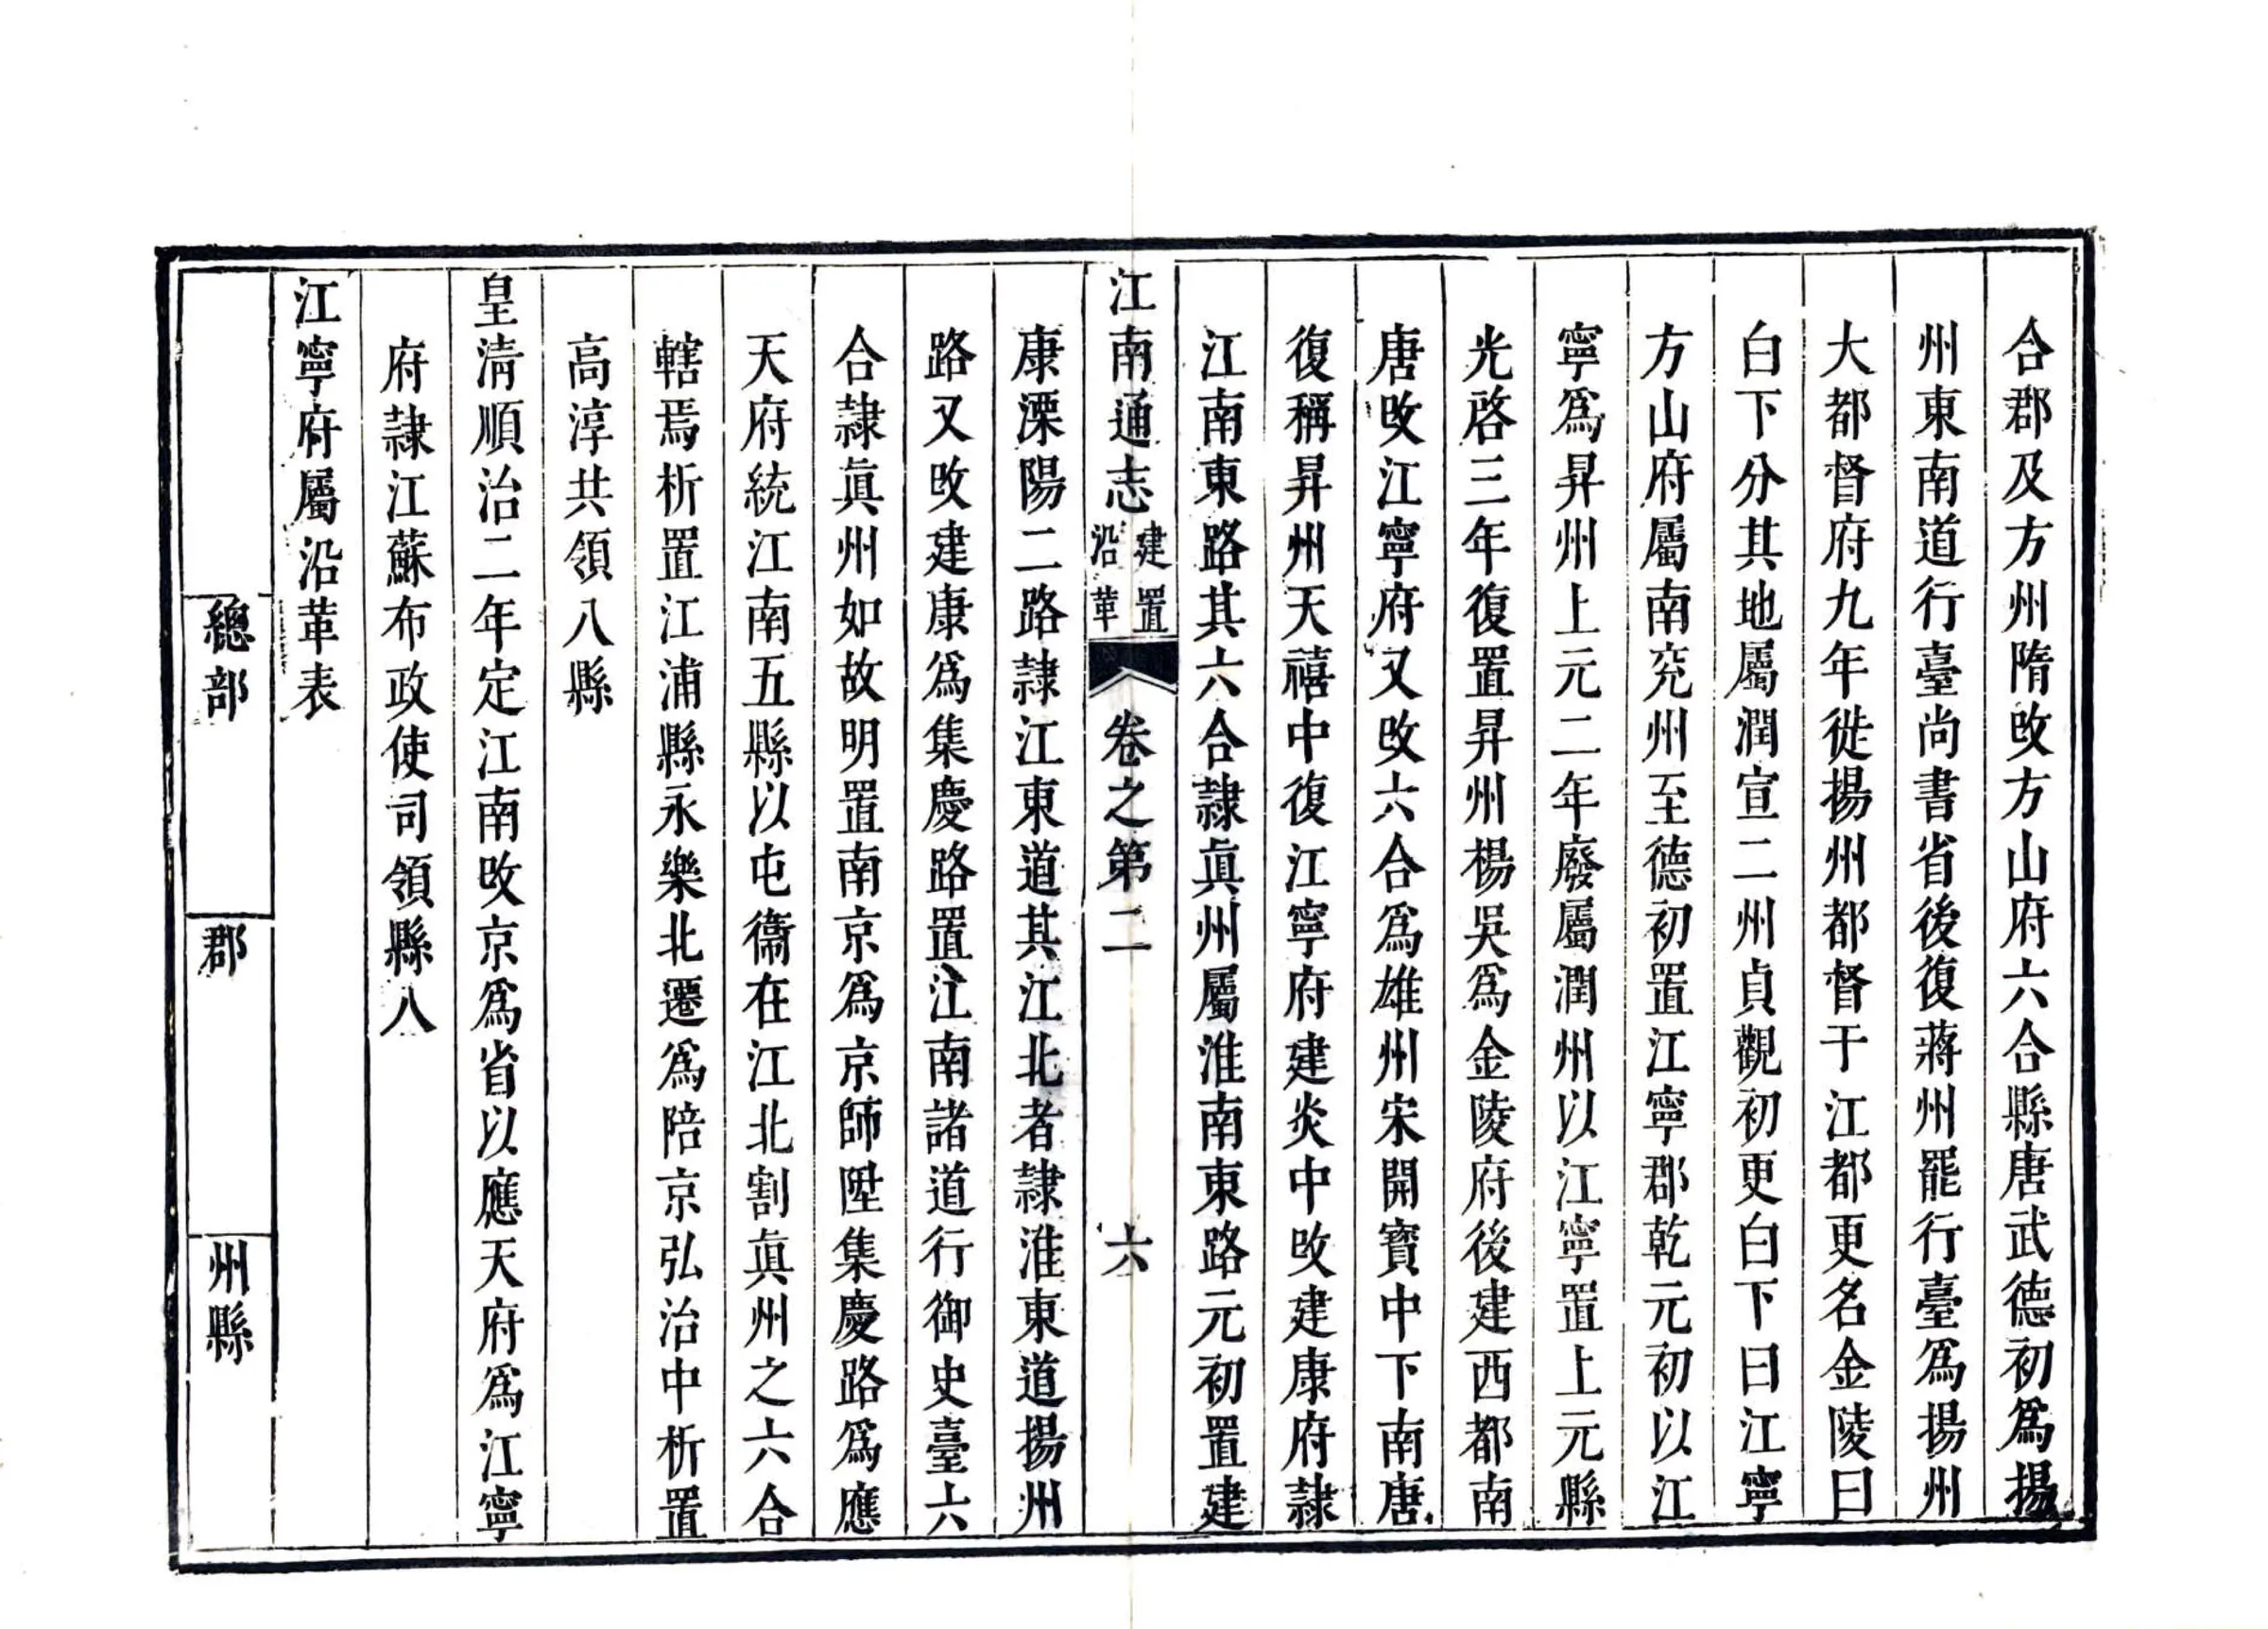 合郡及方州隋攺方山府六合縣唐武德初爲揚
州東南道行臺尚書省後復蔣州罷行臺爲揚州
大都督府九年徙揚州都督于江都更名金陵曰
白下分其地屬潤宣二州貞觀初更白下曰江寧
方山府屬南兖州至德初置江寧郡乾元初以江
寧爲昇州上元二年廢屬潤州以江寧置上元縣
光啓三年復置昇州楊吳爲金陵府後建西都南
唐攺江寧府又攺六合爲雄州宋開寶中下南唐
復稱昇州天禧中復江寧府建炎中攺建康府隷
江南東路其六合隷眞州屬淮南東路元初置建
江南通志 建置沿革 卷之第二 六
康溧陽二路隷江東道其江北者隷淮東道揚州
路又攺建康爲集慶路置江南諸道行御史臺六
合隷眞州如故明置南京爲京師陞集慶路爲應
天府統江南五縣以屯衞在江北割眞州之六合
轄焉析置江浦縣永樂北遷爲陪京弘治中析置
高淳共領八縣
皇清順治二年定江南攺京爲省以應天府爲江寧
府隷江蘇布政使司領縣八
江寧府屬沿革表
總部 郡 州縣